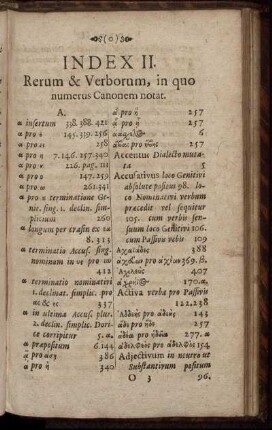 (o)
INDEX II.
Rerum & Verborum, in quo
numerus Canonem notat.
A.
α insertum 338. 388. 421
α pro ε 145. 339. 256
α pro ει 258
α pro η 7. 146. 257. 340
α pro ο 226. pag. 111
α pro ο 147. 259
α pro ω 261. 341
α pro ο terminatione Ge-
nit. sing. 1. declin. sim-
plicium 260
α longum per crasin ex εα
8. 313
α terminatio Accus. sing-
nominum in υς pro υν
412
α terminatio nominativi
1. declinat. simplic. pro
ας & ης 337
α in ultima Accus. plur.
2. declin. simplic. Dori-
ce corripitur 5. α.
α præpositum 6. 144
ᾳ pro αει 386
ᾳ pro η 340
ᾳ pro η 257
ᾳ pro ῃ 257
6
257
Accentus Dialecto muta-
ta 5
Accusativus loco Genitivi
absolute positus 98. lo-
co Nominativi verbum
præcedit vel sequitur
105. cum verbis sen-
suum loco Genitivi 106.
cum Passivis verbis 109
388
369. β.
407
170. α.
Activa verba pro Passivis
122. 238
143
257
277. α.
154
Adjectivum in neutro ut
Substantivum positum
O 3 96.